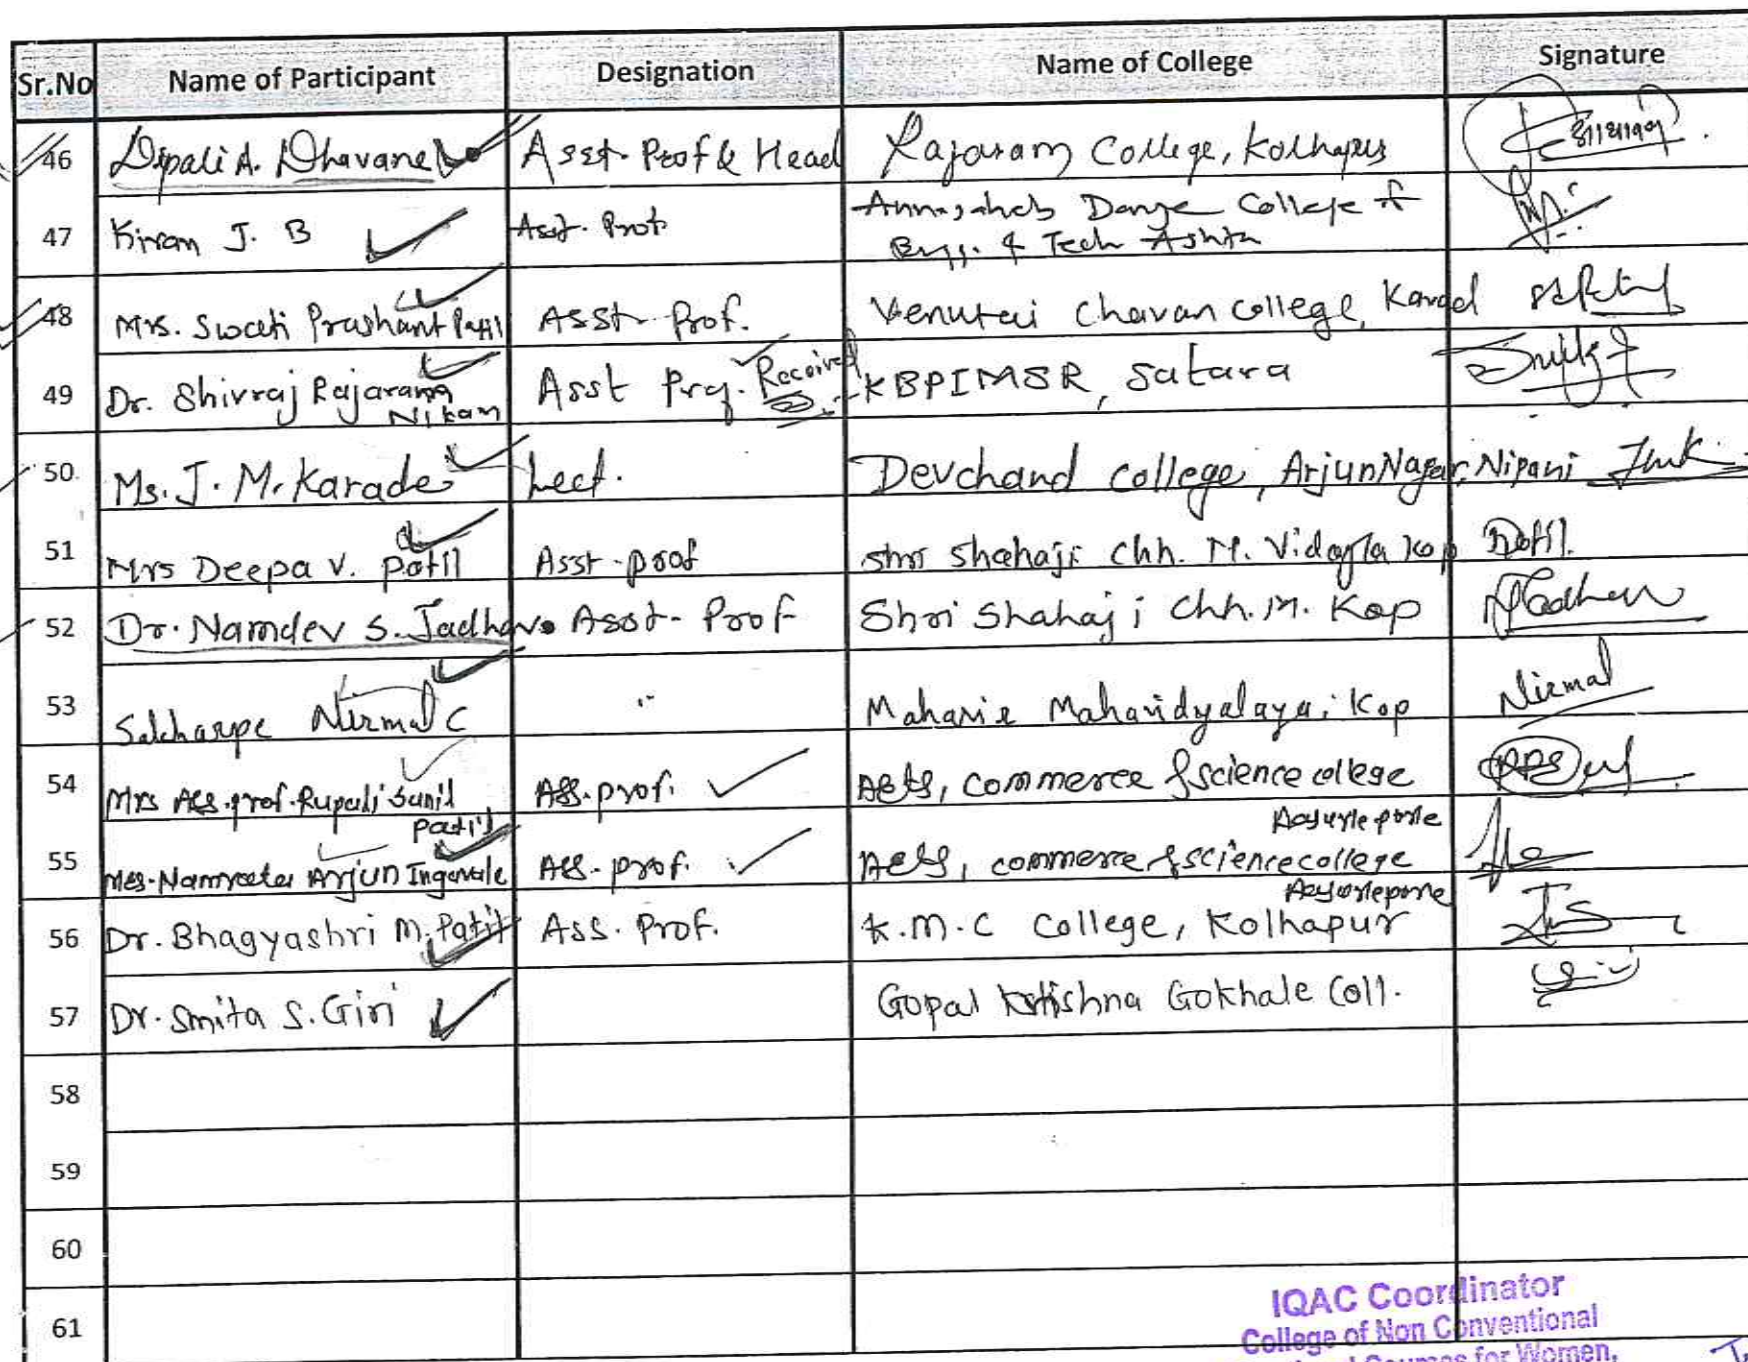 Sr.No Name of Participant Designation Name of College Signature
46 Dipali A. Dhavane Asst. Prof & Head Rajaram College, Kolhapur
47 Kiran J. B Asst. Prof Annasaheb Dange College of
Engg. & Tech Ashta
48 Mrs. Swati Prashant Patil Asst. Prof. Venutai Chavan College, Karad
49 Dr. Shivraj Rajaram Asst Prof. Received KBPIMSR, Satara
Nikam
50. Ms. J. M. Karade Lect. Devchand College, ArjunNagar, Nipani
51 Mrs Deepa V. Patil Asst-prof Shri Shahaji Chh. M. Kop Patil.
52 Dr. Namdev S. Jadhav. Asst- Prof Shri Shahaji Chh. M. Kop
53 Nirmal C " Mahavir Mahavidyalaya, Kop Nirmal
54 Mrs Ass. prof. Rupali Sunil Ass. prof. Arts, Commerce & science college
Patil
55 Mrs. Namrata Arjun Ingavale Ass. prof. Arts, commerce & science college
56 Dr. Bhagyashri M. Patil Ass. Prof. K.M.C College, Kolhapur
57 Dr. Smita S. Giri Gopal Krishna Gokhale Coll.
58
59
60
61
IQAC Coordinator
College of Non Conventional
for Women,